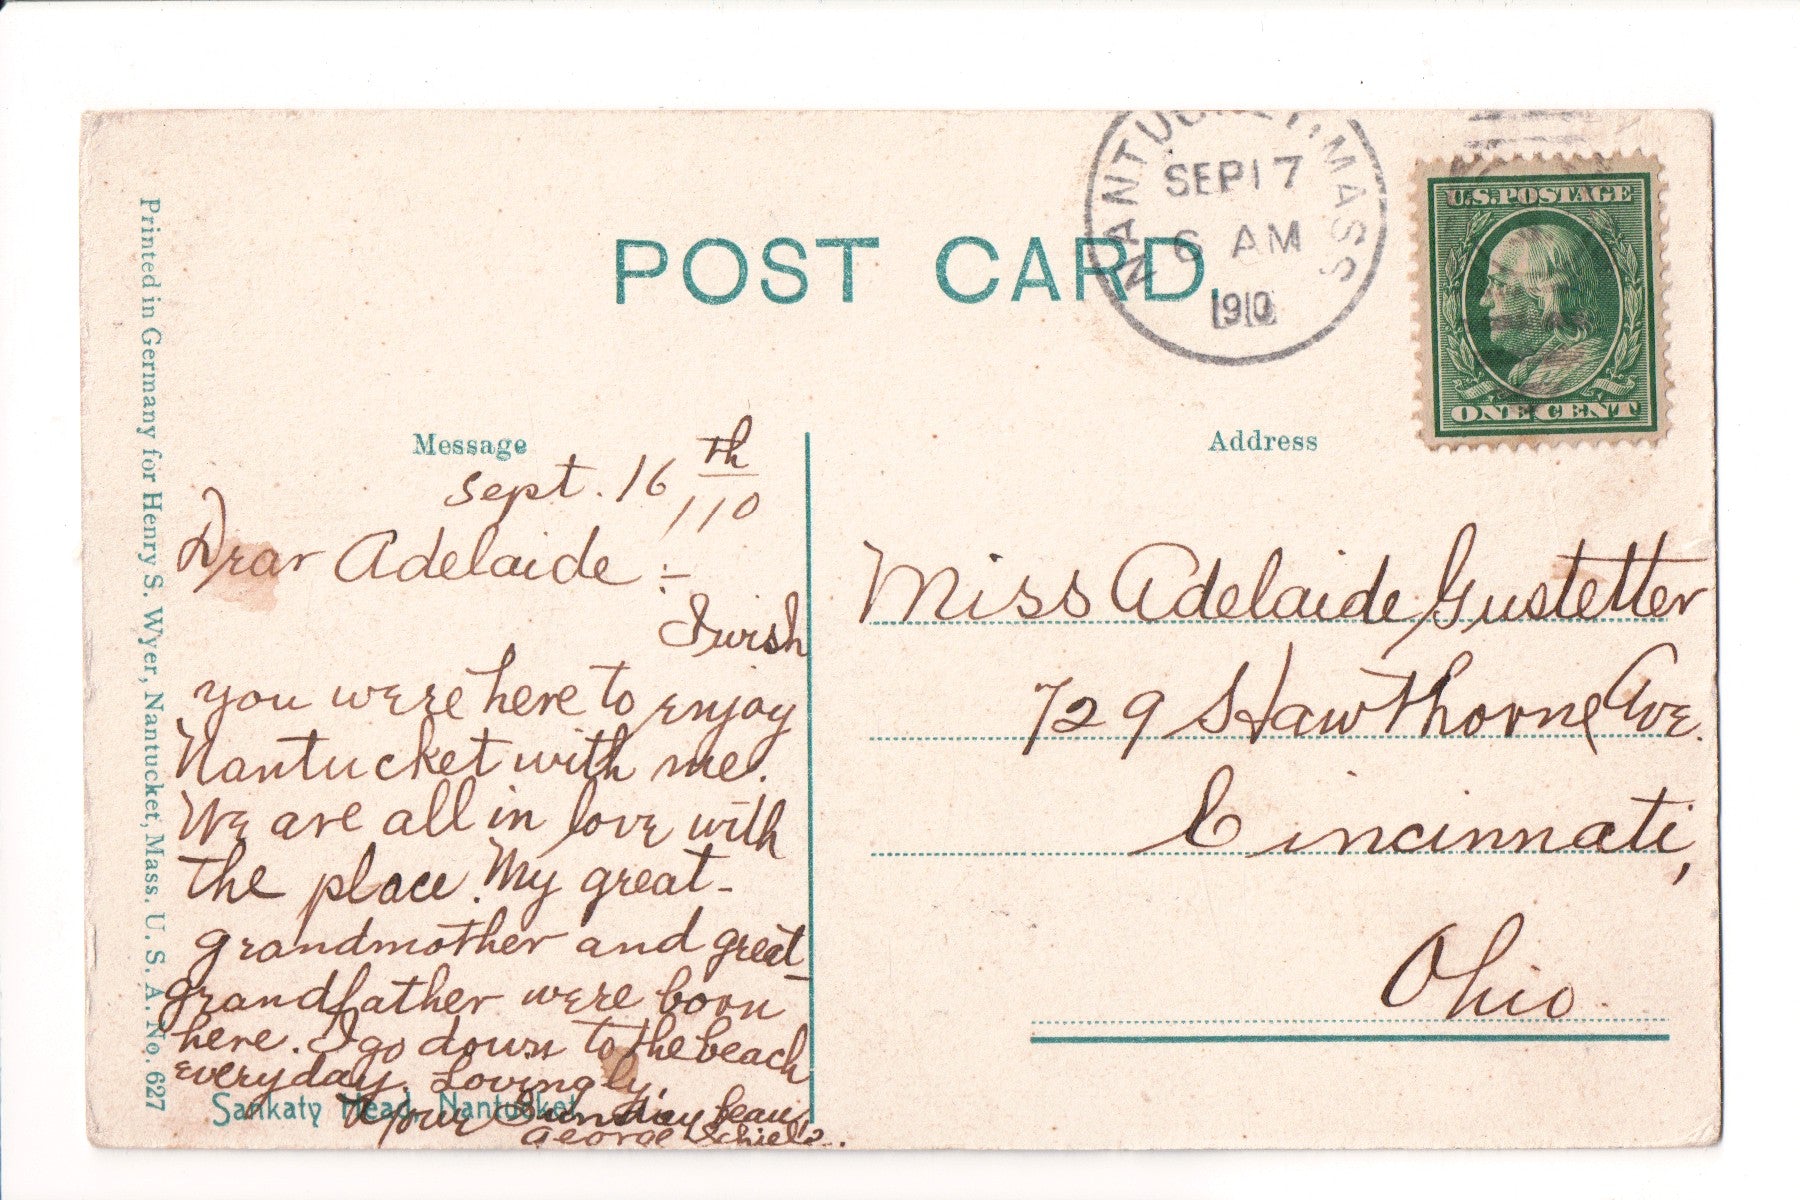 POST CARD.
NANTUCKET, MASS.
SEP 17
6 AM
1910
U.S. POSTAGE
ONE CENT
Message
Address
Sept. 16th
/10
Dear Adelaide :-
I wish
you were here to enjoy
Nantucket with me.
We are all in love with
the place. My great-
grandmother and great-
grandfather were born
here. I go down to the beach
everyday. Lovingly,
Your Sunday beau,
George
Sankaty Head, Nantucket
Miss Adelaide Gustetter
729 Hawthorne Ave.
Cincinnati,
Ohio.
Printed in Germany for Henry S. Wyer, Nantucket, Mass. U. S. A. No. 627